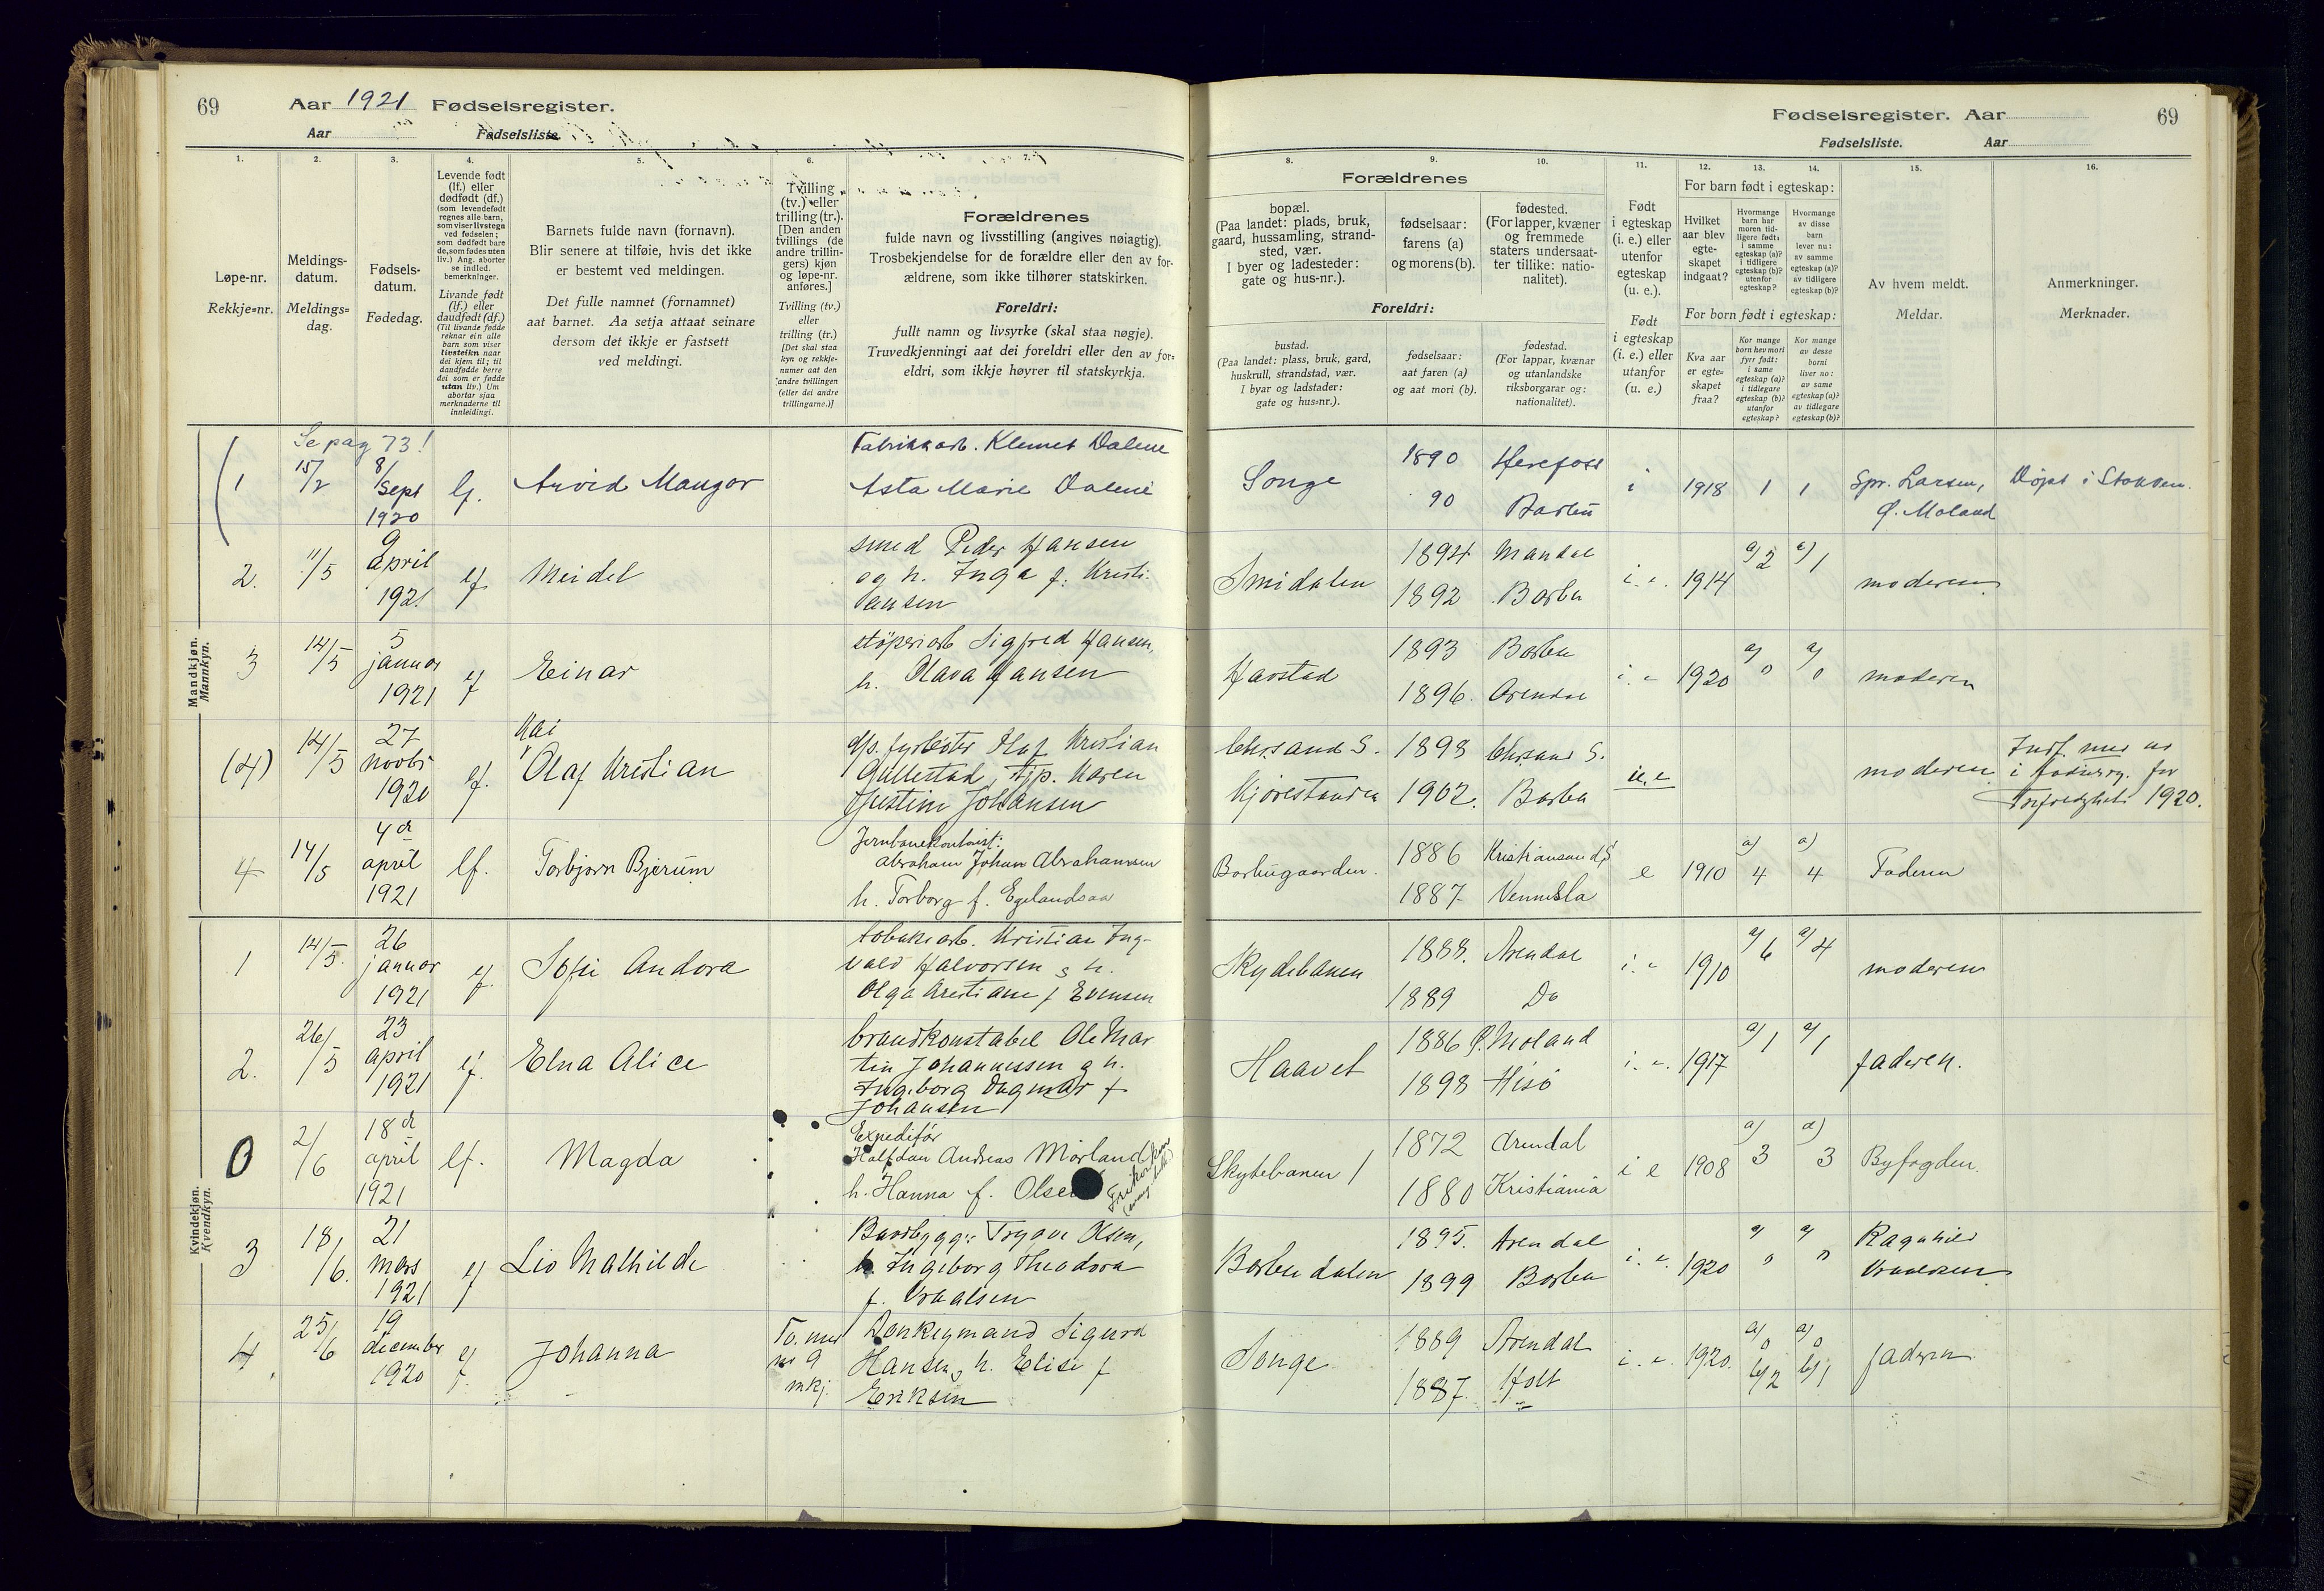 69 Aar 1921 Fødselsregister.
Aar Fødselsliste.
Fødselsregister. Aar 69
Fødselsliste. Aar
1. 2. 3. 4. 5. 6. 7. 8. 9. 10. 11. 12. 13. 14. 15. 16.
Løpe-nr.
Rekkje=nr.
Meldings-
datum.
Meldings=
dag.
Fødsels-
datum.
Fødedag.
Levende født
(lf.) eller
dødfødt (df.)
(som levendefødt
regnes alle barn,
som viser livstegn
ved fødselen;
som dødfødt bare
de, som fødes uten
liv.) Ang. aborter
se indled.
bemerkninger.
Livande født
(lf.) eller
daudfødt (df.)
(Til livande fødde
reknar ein alle
barn som viser
livsteikn naar
dei kjem til; til
daudfødde berre
dei som er fødde
utan liv.) Um
abortar sjaa
merknaderne til
innleidingi.
Barnets fulde navn (fornavn).
Blir senere at tilføie, hvis det ikke
er bestemt ved meldingen.
Det fulle namnet (fornamnet)
aat barnet. Aa setja attaat seinare
dersom det ikkje er fastsett
ved meldingi.
Tvilling
(tv.) eller
trilling (tr.).
[Den anden
tvillings (de
andre trillin-
gers) kjøn
og løpe-nr.
anføres.]
Tvilling (tv.)
eller
trilling (tr.)
[Det skal staa
kyn og rekkje-
numer aat den
andre tvillingen
(eller dei andre
trillingarne.)]
Forældrenes
fulde navn og livsstilling (angives nøiagtig).
Trosbekjendelse for de forældre eller den av for-
ældrene, som ikke tilhører statskirken.
Foreldri:
fullt namn og livsyrke (skal staa nøgje).
Truvedkjenningi aat dei foreldri eller den av for=
eldri, som ikkje høyrer til statskyrkja.
Forældrenes
bopæl.
(Paa landet: plads, bruk,
gaard, hussamling, strand-
sted, vær.
I byer og ladesteder:
gate og hus-nr.).
fødselsaar:
farens (a)
og morens (b).
fødested.
(For lapper, kvæner
og fremmede
staters undersaat-
ter tillike: natio-
nalitet).
Foreldri:
bustad.
(Paa landet: plass, bruk, gard,
huskrull, strandstad, vær.
I byar og ladstader:
gate og hus=nr.).
fødselsaar:
aat faren (a)
og aat mori (b).
fødestad.
(For lappar, kvænar
og utanlandske
riksborgarar og:
nationalitet).
Født
i egteskap
(i. e.) eller
utenfor
egteskap
(u. e.).
Født
i egteskap
(i. e.) eller
utanfor
(u. e.)
For barn født i egteskap:
Hvilket
aar blev
egte-
skapet
indgaat?
Hvormange
barn har
moren tid-
ligere født:
i samme
egteskap (a)?
i tidligere
egteskap (b)?
utenfor
egteskap?
Hvormange
av disse
barn
lever nu:
av samme
egteskap (a)?
av tidligere
egteskap (b)?
For born født i egteskap:
Kva aar
er egte=
skapet
fraa?
Kor mange
born hev mori
fyrr født:
i same
egteskap (a)?
i tidlegare
egteskap (b)?
utanfor
egteskap?
Kor mange
av desse
borni
liver no:
av same
egteskap (a)?
av tidlegare
egteskap (b)?
Av hvem meldt.
Meldar.
Anmerkninger.
Merknader.
Mandkjøn.
Mannkyn.
Se pag 73!
1 15/2 8/ Sept 1920 lf. Arvid Mangor
Fabrikkarb. Klemet Dalene
Asta Marie Dalene
Songe 1890 Herefoss i 1918 1 1 Spr. Larsen, Døpt i Stokken.
90 Barbu Ø. Moland
2. 11/5 9 april 1921 lf Meidel
smed Peder Hansen
og h. Inga f. Kristi-
ansen
Smidalen 1894 Mandal i. e. 1914 a/ 2 a/ 1 moderen
1892 Barbu
3 14/5 5 januar 1921 lf Einar
støperiarb Sigfred Hansen,
h. Olava Hansen
Harstad 1893 Barbu i. e 1920 a/ 0 a/ 0 moderen
1896. Arendal
(4) 14/5 27 novbr 1920 lf. Kai Olaf Kristian
Olaf Kristian
Gullestad, tjp. Karen
Justine Johansen
Chrsand S. 1898 Chrsand S. u. e moderen
1902. Barbu
1920.
4 14/5 4de april 1921 lf. Torbjørn Bjerum
Jernbanekontorist:
Abraham Johan Abrahamsen
h. Torborg f. Egelandsaa
Barbugaarden. 1886 Kristiansand S e 1910 a) 4 a) 4 Faderen
1887 Vennesla
Kvindekjøn.
Kvendkyn.
1 14/5. 26 januar 1921 lf. Sofie Andora
tobaksarb. Kristian Ing-
vald Halvorsen, h.
Olga Kristiane f Evensen
Skydebanen 1888. Arendal i. e 1910 a/ 6 a/ 4 moderen
1889 Do
2. 26/5 23 april 1921 lf. Elna Alice
brandkonstabel Ole Mar
tin Johannessen og h.
Ingeborg Dagmar f
Johansen
Haavet 1886 Ø. Moland i. e. 1917 a/ 1 a/ 1 faderen.
1898 Hisø
0 2/6 18de april 1921 lf. Magda
Expeditør
Halfdan Andreas Mørland
h. Hanna f. Olsen
Skytebanen 1 1872 Arendal i e 1908 a) 3 a) 3 Byfogden.
1880 Kristiania
3 18/6. 21 mars 1921 lf Liv Mathilde
Baadbygger Trygve Olsen,
h. Ingeborg Theodora
f. Vraalsen
Barbudalen 1895. Arendal i. e. 1920 a/ 0 a/ 0 Ragnhild
1899 Barbu Vraalsen
4 25/6 19 december 1920 lf. Johanna
Tv. med
nr 9
mkj.
Donkeymand Sigurd
Hansen, h. Elise f
Eriksen
Songe 1889 Arendal i. e. 1920. a/ 0 a/ 0 faderen
1887. Holt b/2 b/1